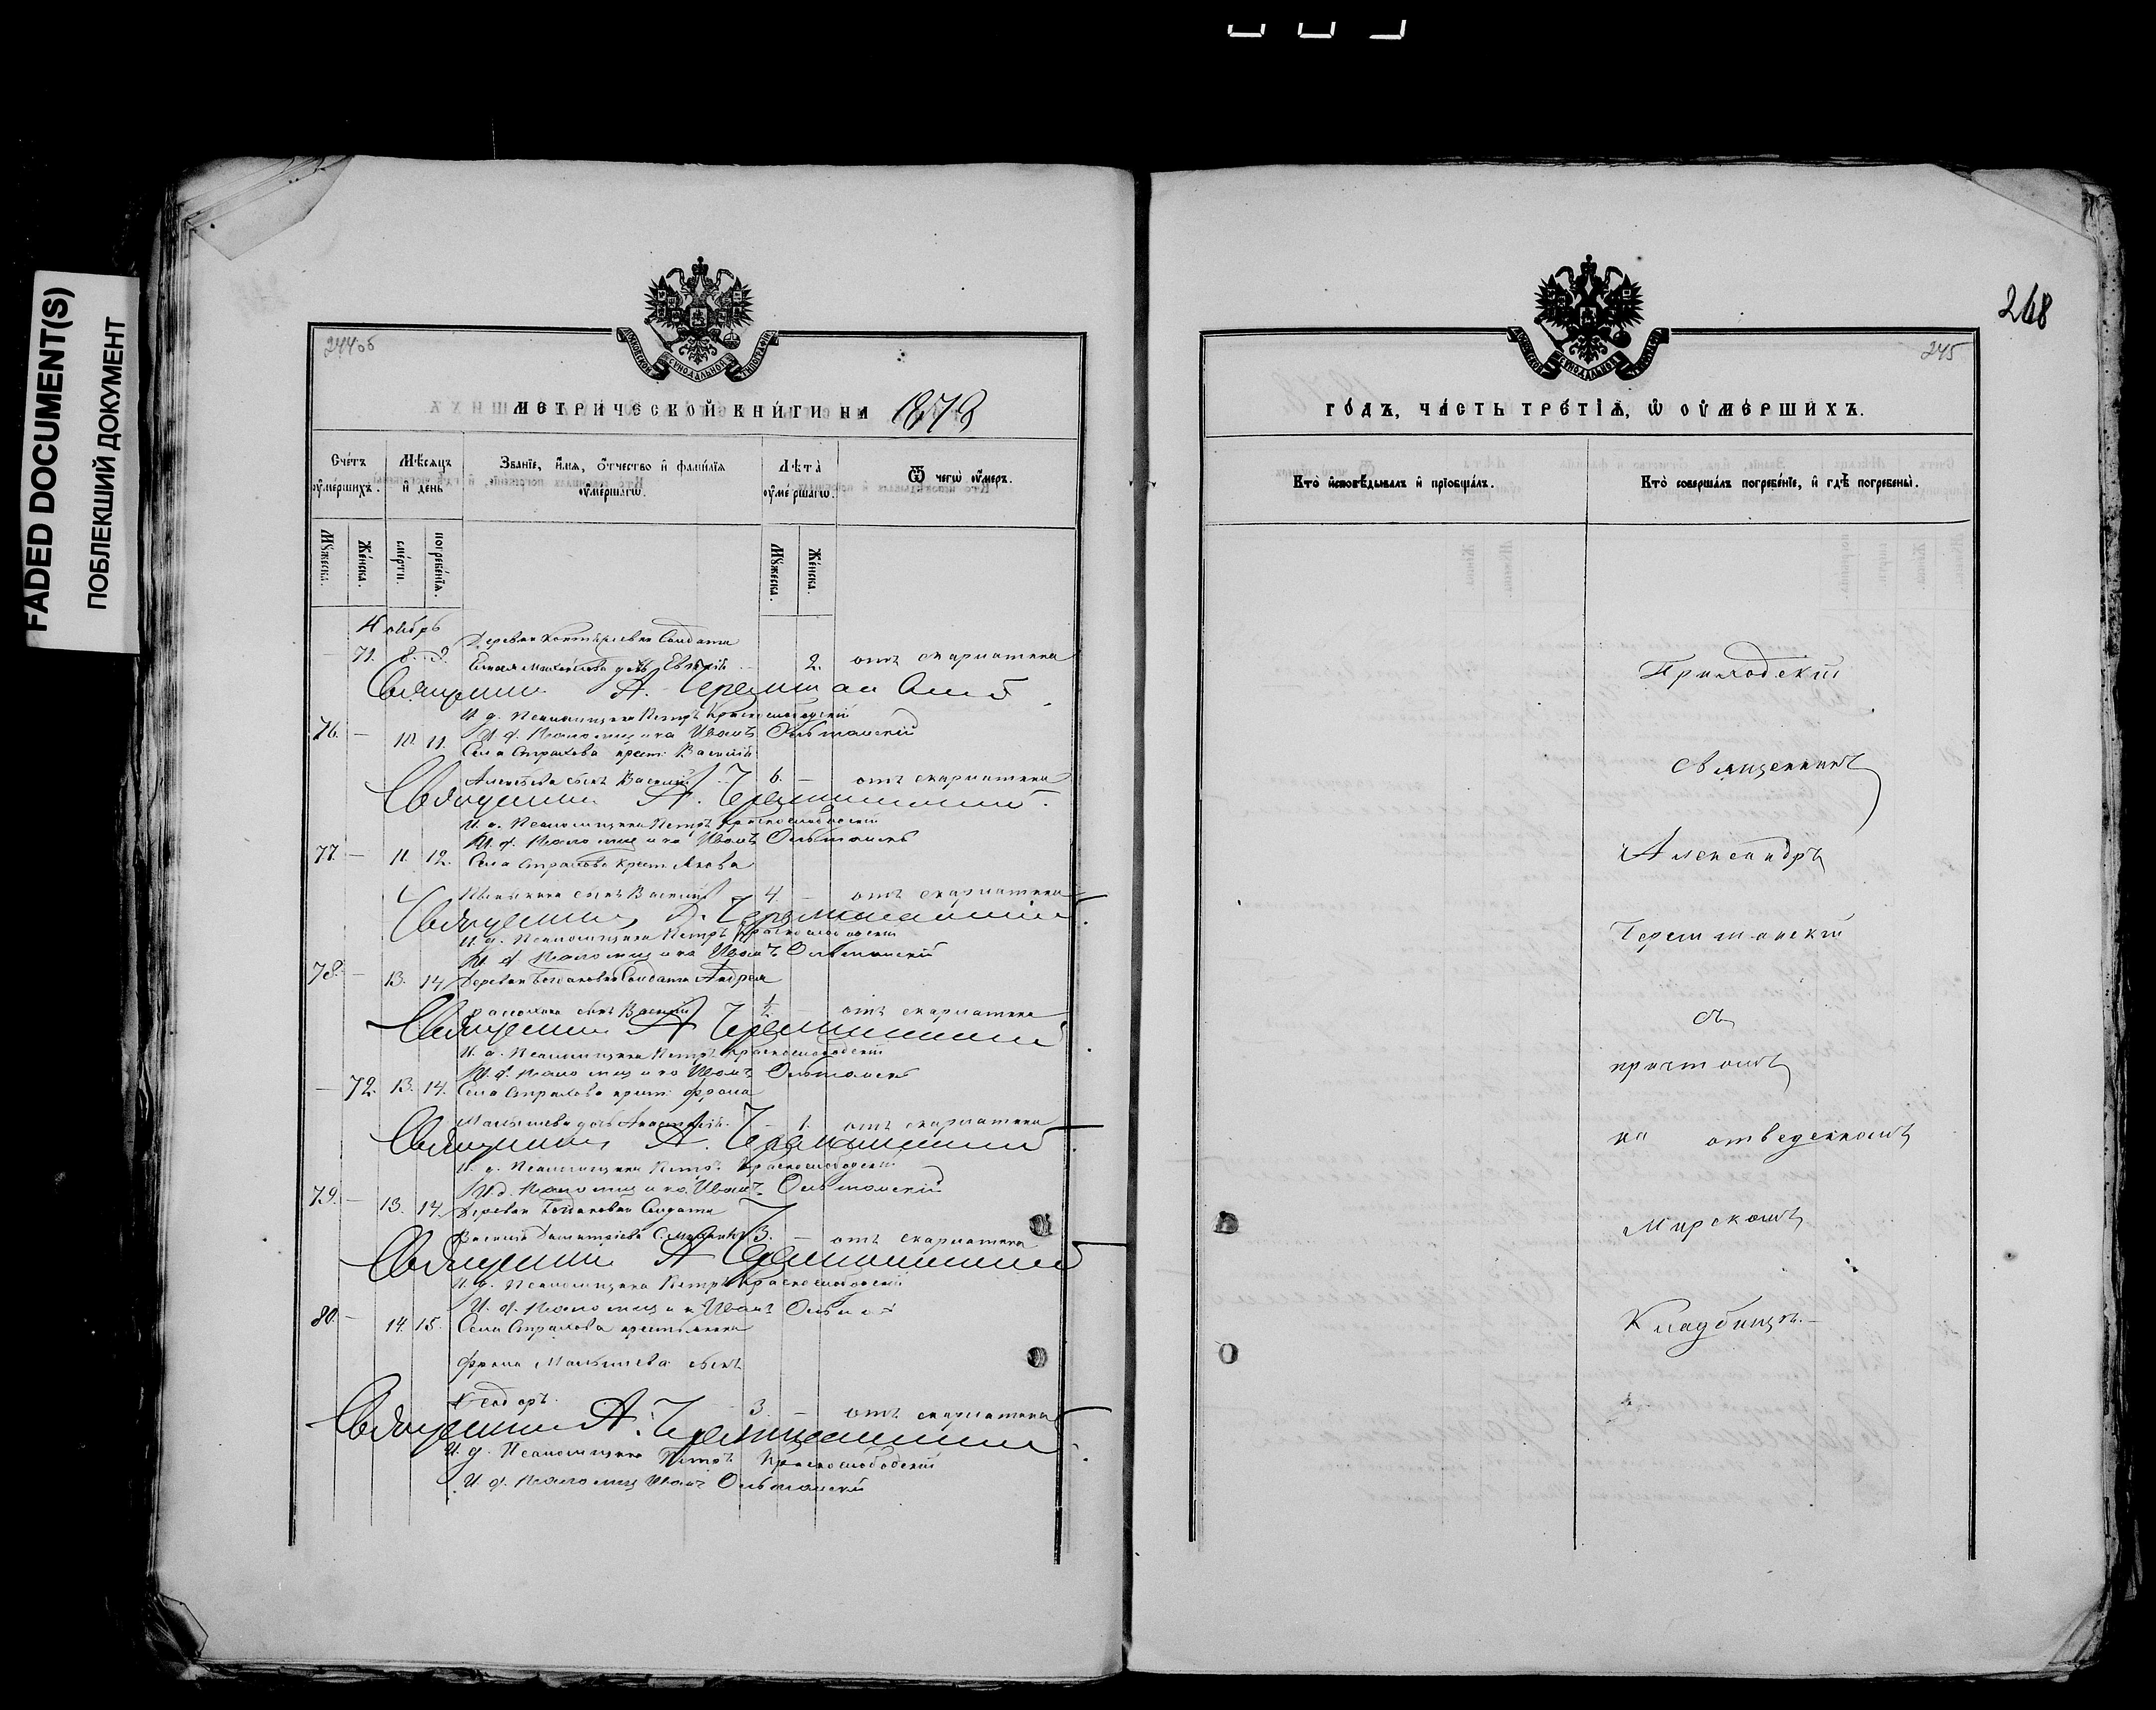 FADED DOCUMENT(S)
ПОБЛЕКШИЙ ДОКУМЕНТ
244об
МОСКОВСКОЙ СѴНОДАЛЬНОЙ ТИПОГРАФІИ
МЕТРИЧЕСКОЙ КНИГИ НА 1878
Счетъ ѹмершихъ.
Мѣсяцъ и день
Званіе, имя, отчество и фамилія ѹмершагѡ.
Лѣта ѹмершагѡ.
Ѿ чегѡ ѹмеръ.
Мѹжеска.
Женска.
смерти.
погребенія.
Мѹжеска.
Женска.
Ноябрь
Деревни Солдата
71. 8. 9. дочь 2. отъ скарлатина
Священникъ А. Черемшанскій
И. д. Псаломщика Петръ Краснослободскій
И. д. Псаломщика Иванъ Ольшанскій
76. – 10. 11. Села Страхова крест. Василій
Алексѣева сынъ Василій 6. – отъ скарлатина
Священникъ А. Черемшанскій
И. д. Псаломщика Петръ Краснослободскій
И. д. Псаломщика Иванъ Ольшанскій
77. – 11. 12. Села Страхова крест. Якова
сынъ Василій 4. – отъ скарлатина
Священникъ А. Черемшанскій
И. д. Псаломщика Петръ Краснослободскій
И. д. Псаломщика Иванъ Ольшанскій
78. – 13. 14. Деревни Богдановки Солдата Андрея
сынъ Василій ½. – отъ скарлатина
Священникъ А. Черемшанскій
И. д. Псаломщика Петръ Краснослободскій
И. д. Псаломщика Иванъ Ольшанскій
– 72. 13. 14. Села Страхова крест. Фрола
Малышева дочь Анастасія – 1. отъ скарлатина
Священникъ А. Черемшанскій
И. д. Псаломщика Петръ Краснослободскій
И. д. Псаломщика Иванъ Ольшанскій
79. – 13. 14. Деревни Богдановки Солдата
Василія 3. – отъ скарлатина
Священникъ А. Черемшанскій
И. д. Псаломщика Петръ Краснослободскій
И. д. Псаломщика Иванъ
80. – 14. 15. Села Страхова крестьянина
Фрола Малышева сынъ
Ѳеодоръ. 3. – отъ скарлатина
Священникъ А. Черемшанскій
И. д. Псаломщика Петръ Краснослободскій
И. д. Псаломщ Иванъ Ольшанскій
268
245
МОСКОВСКОЙ СѴНОДАЛЬНОЙ ТИПОГРАФІИ
ГОДЪ, ЧАСТЬ ТРЕТІѦ, Ѡ ОУМЕРШИХЪ.
Кто исповѣдывалъ и пріобщалъ.
Кто совершалъ погребеніе, и гдѣ погребены.
Приходскій
священникъ
Александръ
Черемшанскій
съ
причтомъ
на отведенномъ
Мирскомъ
Кладбищѣ.